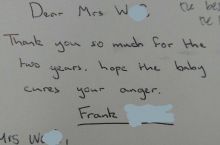 Dear Mrs W
the be
Thank you so much for the
two years. hope the baby
cures your anger.
Frank
Mrs W